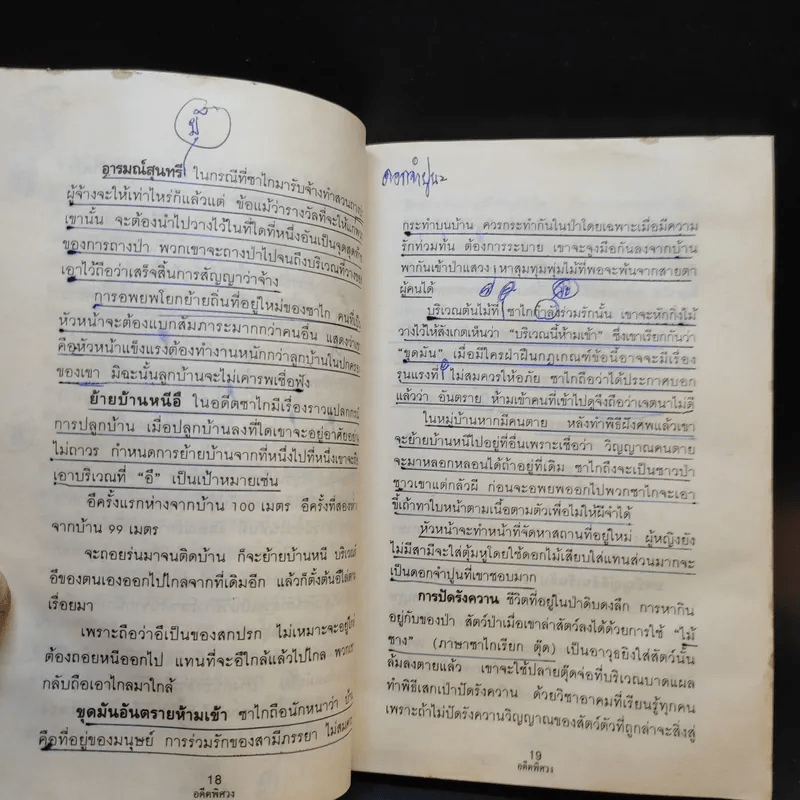 ขี้
อารมณ์สุนทรี ในกรณีที่ซาไกมารับจ้างทำสวน
ผู้จ้างจะให้เท่าไหร่ก็แล้วแต่ ข้อแม้ว่ารางวัลที่จะให้แก่พวก
เขานั้น จะต้องนำไปวางไว้ในที่ใดที่หนึ่งอันเป็นจุดสุดท้าย
ของการถางป่า พวกเขาจะถางป่าไปจนถึงบริเวณที่วางของ
เอาไว้ถือว่าเสร็จสิ้นการสัญญาว่าจ้าง
การอพยพโยกย้ายถิ่นที่อยู่ใหม่ของซาไก คนที่เป็น
หัวหน้าจะต้องแบกสัมภาระมากกว่าคนอื่น แสดงว่าเขา
คือหัวหน้าแข็งแรงต้องทำงานหนักกว่าลูกบ้านในปกครอง
ของเขา มิฉะนั้นลูกบ้านจะไม่เคารพเชื่อฟัง
ย้ายบ้านหนีอึ ในอดีตซาไกมีเรื่องราวแปลก
การปลูกบ้าน เมื่อปลูกบ้านลงที่ใดเขาจะอยู่อาศัยอย่าง
ไม่ถาวร กำหนดการย้ายบ้านจากที่หนึ่งไปที่หนึ่งเขาจะ
เอาบริเวณที่ "อึ" เป็นเป้าหมายเช่น
อึครั้งแรกห่างจากบ้าน 100 เมตร อึครั้งที่สอง
จากบ้าน 99 เมตร
จะถอยร่นมาจนติดบ้าน ก็จะย้ายบ้านหนี บริเวณ
อึของตนเองออกไปไกลจากที่เดิมอีก แล้วก็ตั้งต้นอึไล่
เรื่อยมา
เพราะถือว่าอึเป็นของสกปรก ไม่เหมาะจะอยู่ใกล้
ต้องถอยหนีออกไป แทนที่จะอึใกล้แล้วไปไกล พวก
กลับถือเอาไกลมาใกล้
ขุดมันอันตรายห้ามเข้า ซาไกถือนักหนาว่า บ้าน
คือที่อยู่ของมนุษย์ การร่วมรักของสามีภรรยา ไม่สมควร
18
อดีตพิศวง
ดอกจำปูน
กระทำบนบ้าน ควรกระทำกันในป่าโดยเฉพาะเมื่อมีความ
รักท่วมท้น ต้องการระบาย เขาจะจูงมือกันลงจากบ้าน
พากันเข้าป่าแสวงหาสุมทุมพุ่มไม้ที่พอจะพ้นจากสายตา
ผู้คนได้
บริเวณต้นไม้ที่ ซาไกกำลังร่วมรักนั้น เขาจะหักกิ่งไม้
วางไว้ให้สังเกตเห็นว่า "บริเวณนี้ห้ามเข้า" ซึ่งเขาเรียกกันว่า
"ขุดมัน" เมื่อมีใครฝ่าฝืนกฎเกณฑ์ข้อนี้อาจจะมีเรื่อง
รุนแรงที่ ไม่สมควรให้อภัย ซาไกถือว่าได้ประกาศบอก
แล้วว่า อันตราย ห้ามเข้าคนที่เข้าไปดูจึงถือว่าเจตนาไม่ดี
ในหมู่บ้านหากมีคนตาย หลังทำพิธีฝังศพแล้วเขา
จะย้ายบ้านหนีไปอยู่ที่อื่นเพราะเชื่อว่า วิญญาณคนตาย
จะมาหลอกหลอนได้ถ้าอยู่ที่เดิม ซาไกถึงจะเป็นชาวป่า
ชาวเขาแต่กลัวผี ก่อนจะอพยพออกไปพวกซาไกจะเอา
ขี้เถ้าทาใบหน้าตามเนื้อตามตัวเพื่อไม่ให้ผีจำได้
หัวหน้าจะทำหน้าที่จัดหาสถานที่อยู่ใหม่ ผู้หญิงยัง
ไม่มีสามีจะใส่ตุ้มหูโดยใช้ดอกไม้เสียบใส่แทนส่วนมากจะ
เป็นดอกจำปูนที่เขาชอบมาก
การปัดรังควาน ชีวิตที่อยู่ในป่าดิบดงลึก การหากิน
อยู่กับของป่า สัตว์ป่าเมื่อเขาล่าสัตว์ลงได้ด้วยการใช้ "ไม้
ซาง" (ภาษาซาไกเรียก ตุ๊ด) เป็นอาวุธยิงใส่สัตว์นั้น
ล้มลงตายแล้ว เขาจะใช้ปลายตุ๊ดจ่อที่บริเวณบาดแผล
ทำพิธีเสกเป่าปัดรังควาน ด้วยวิชาอาคมที่เรียนรู้ทุกคน
เพราะถ้าไม่ปัดรังควานวิญญาณของสัตว์ตัวที่ถูกล่าจะสิงสู่
19
อดีตพิศวง